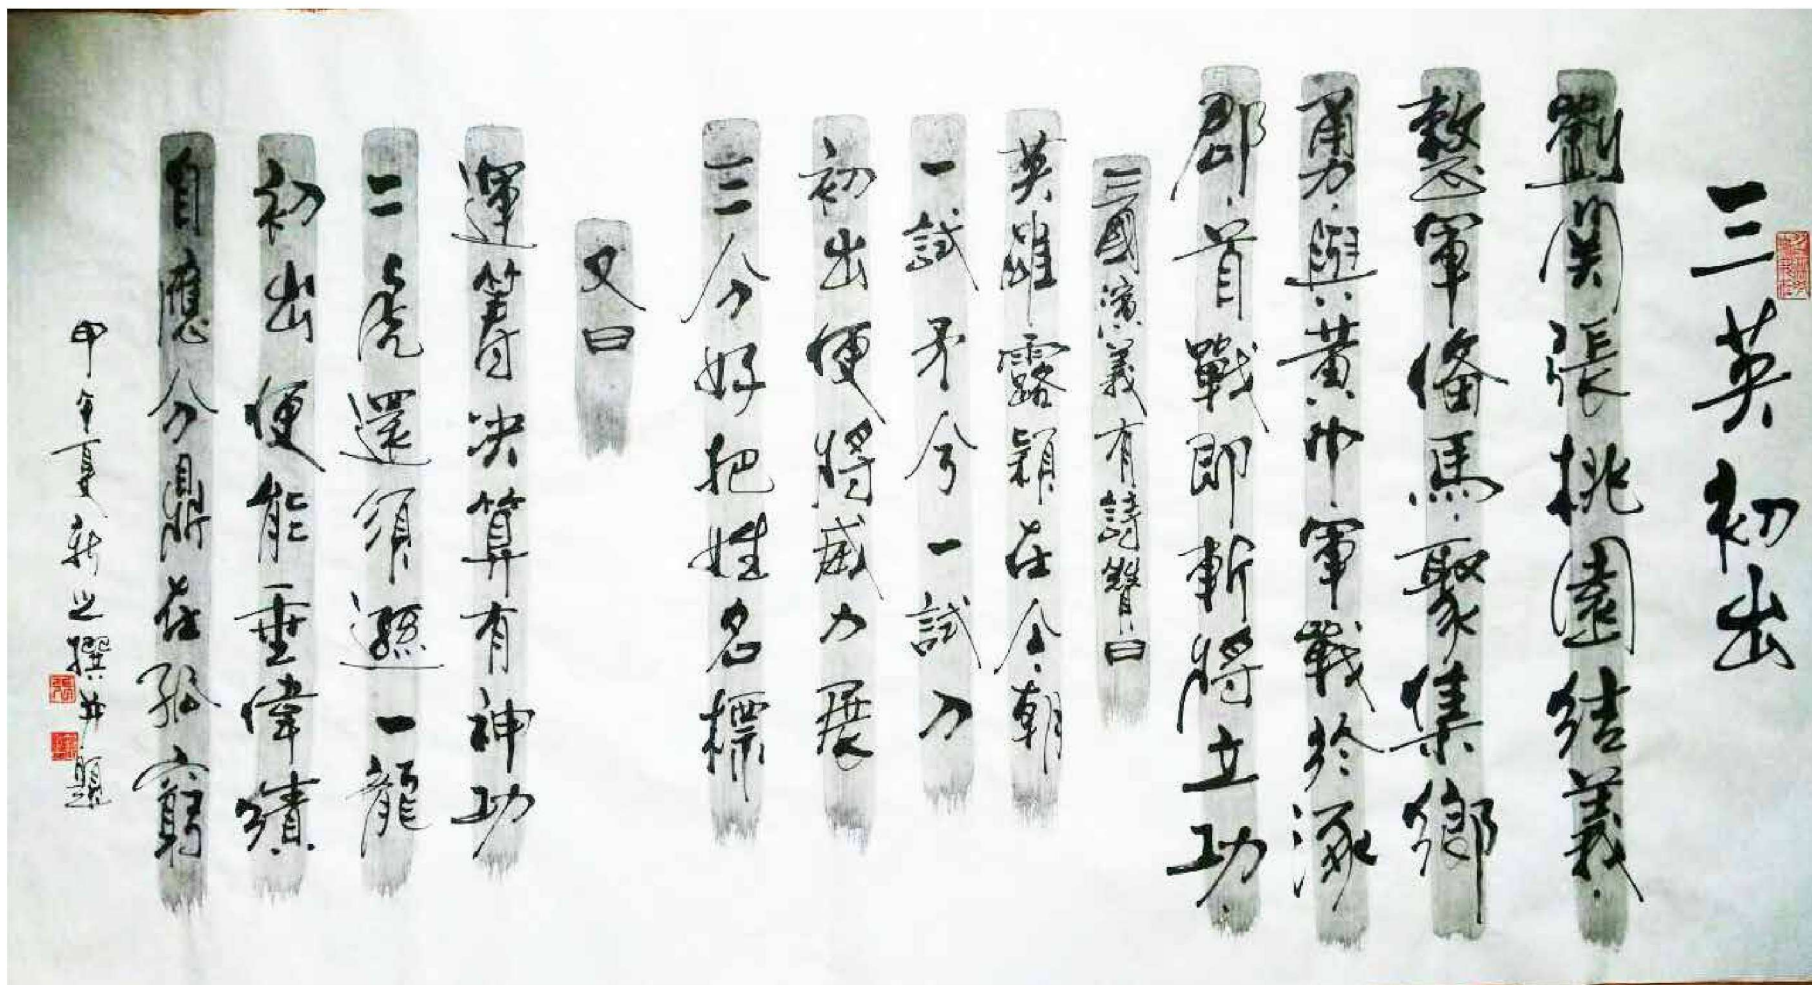 三英初出
劉関張桃園結義.
整軍備馬.聚集鄉
勇.與黃巾軍戰於涿
郡.首戰即斬將立功.
三國演義有詩贊曰
英雄露穎在今朝
一試矛兮一試刀
初出便將威力展
三分好把姓名標
又曰
運籌決算有神功
二虎還須遜一龍
初出便能垂偉績
自應分鼎在孤窮
甲午夏新之撰井題